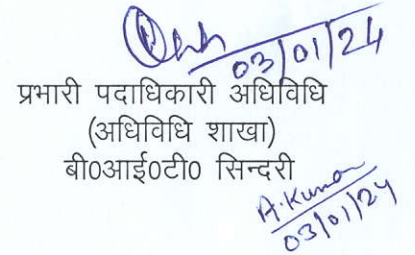 03/01/24
प्रभारी पदाधिकारी अधिविधि
(अधिविधि शाखा)
बी0आई0टी0 सिन्दरी
A.Kumar
03/01/24